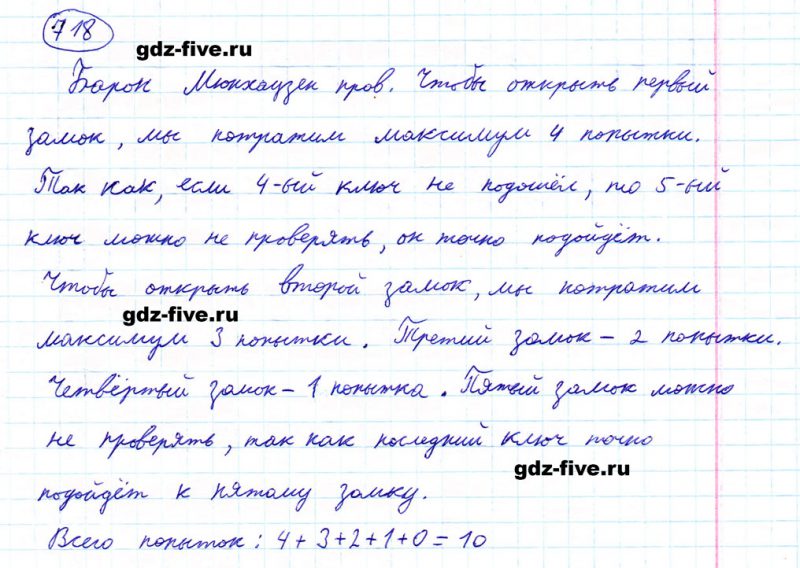 718
gdz-five.ru
Барон Мюнхаузен прав. Чтобы открыть первый
замок, мы потратим максимум 4 попытки.
Так как, если 4-ый ключ не подошёл, то 5-ый
ключ можно не проверять, он точно подойдёт.
Чтобы открыть второй замок, мы потратим
gdz-five.ru
максимум 3 попытки. Третий замок - 2 попытки.
Четвёртый замок - 1 попытка. Пятый замок можно
не проверять, так как последний ключ точно
gdz-five.ru
подойдёт к пятому замку.
Всего попыток: 4+3+2+1+0=10